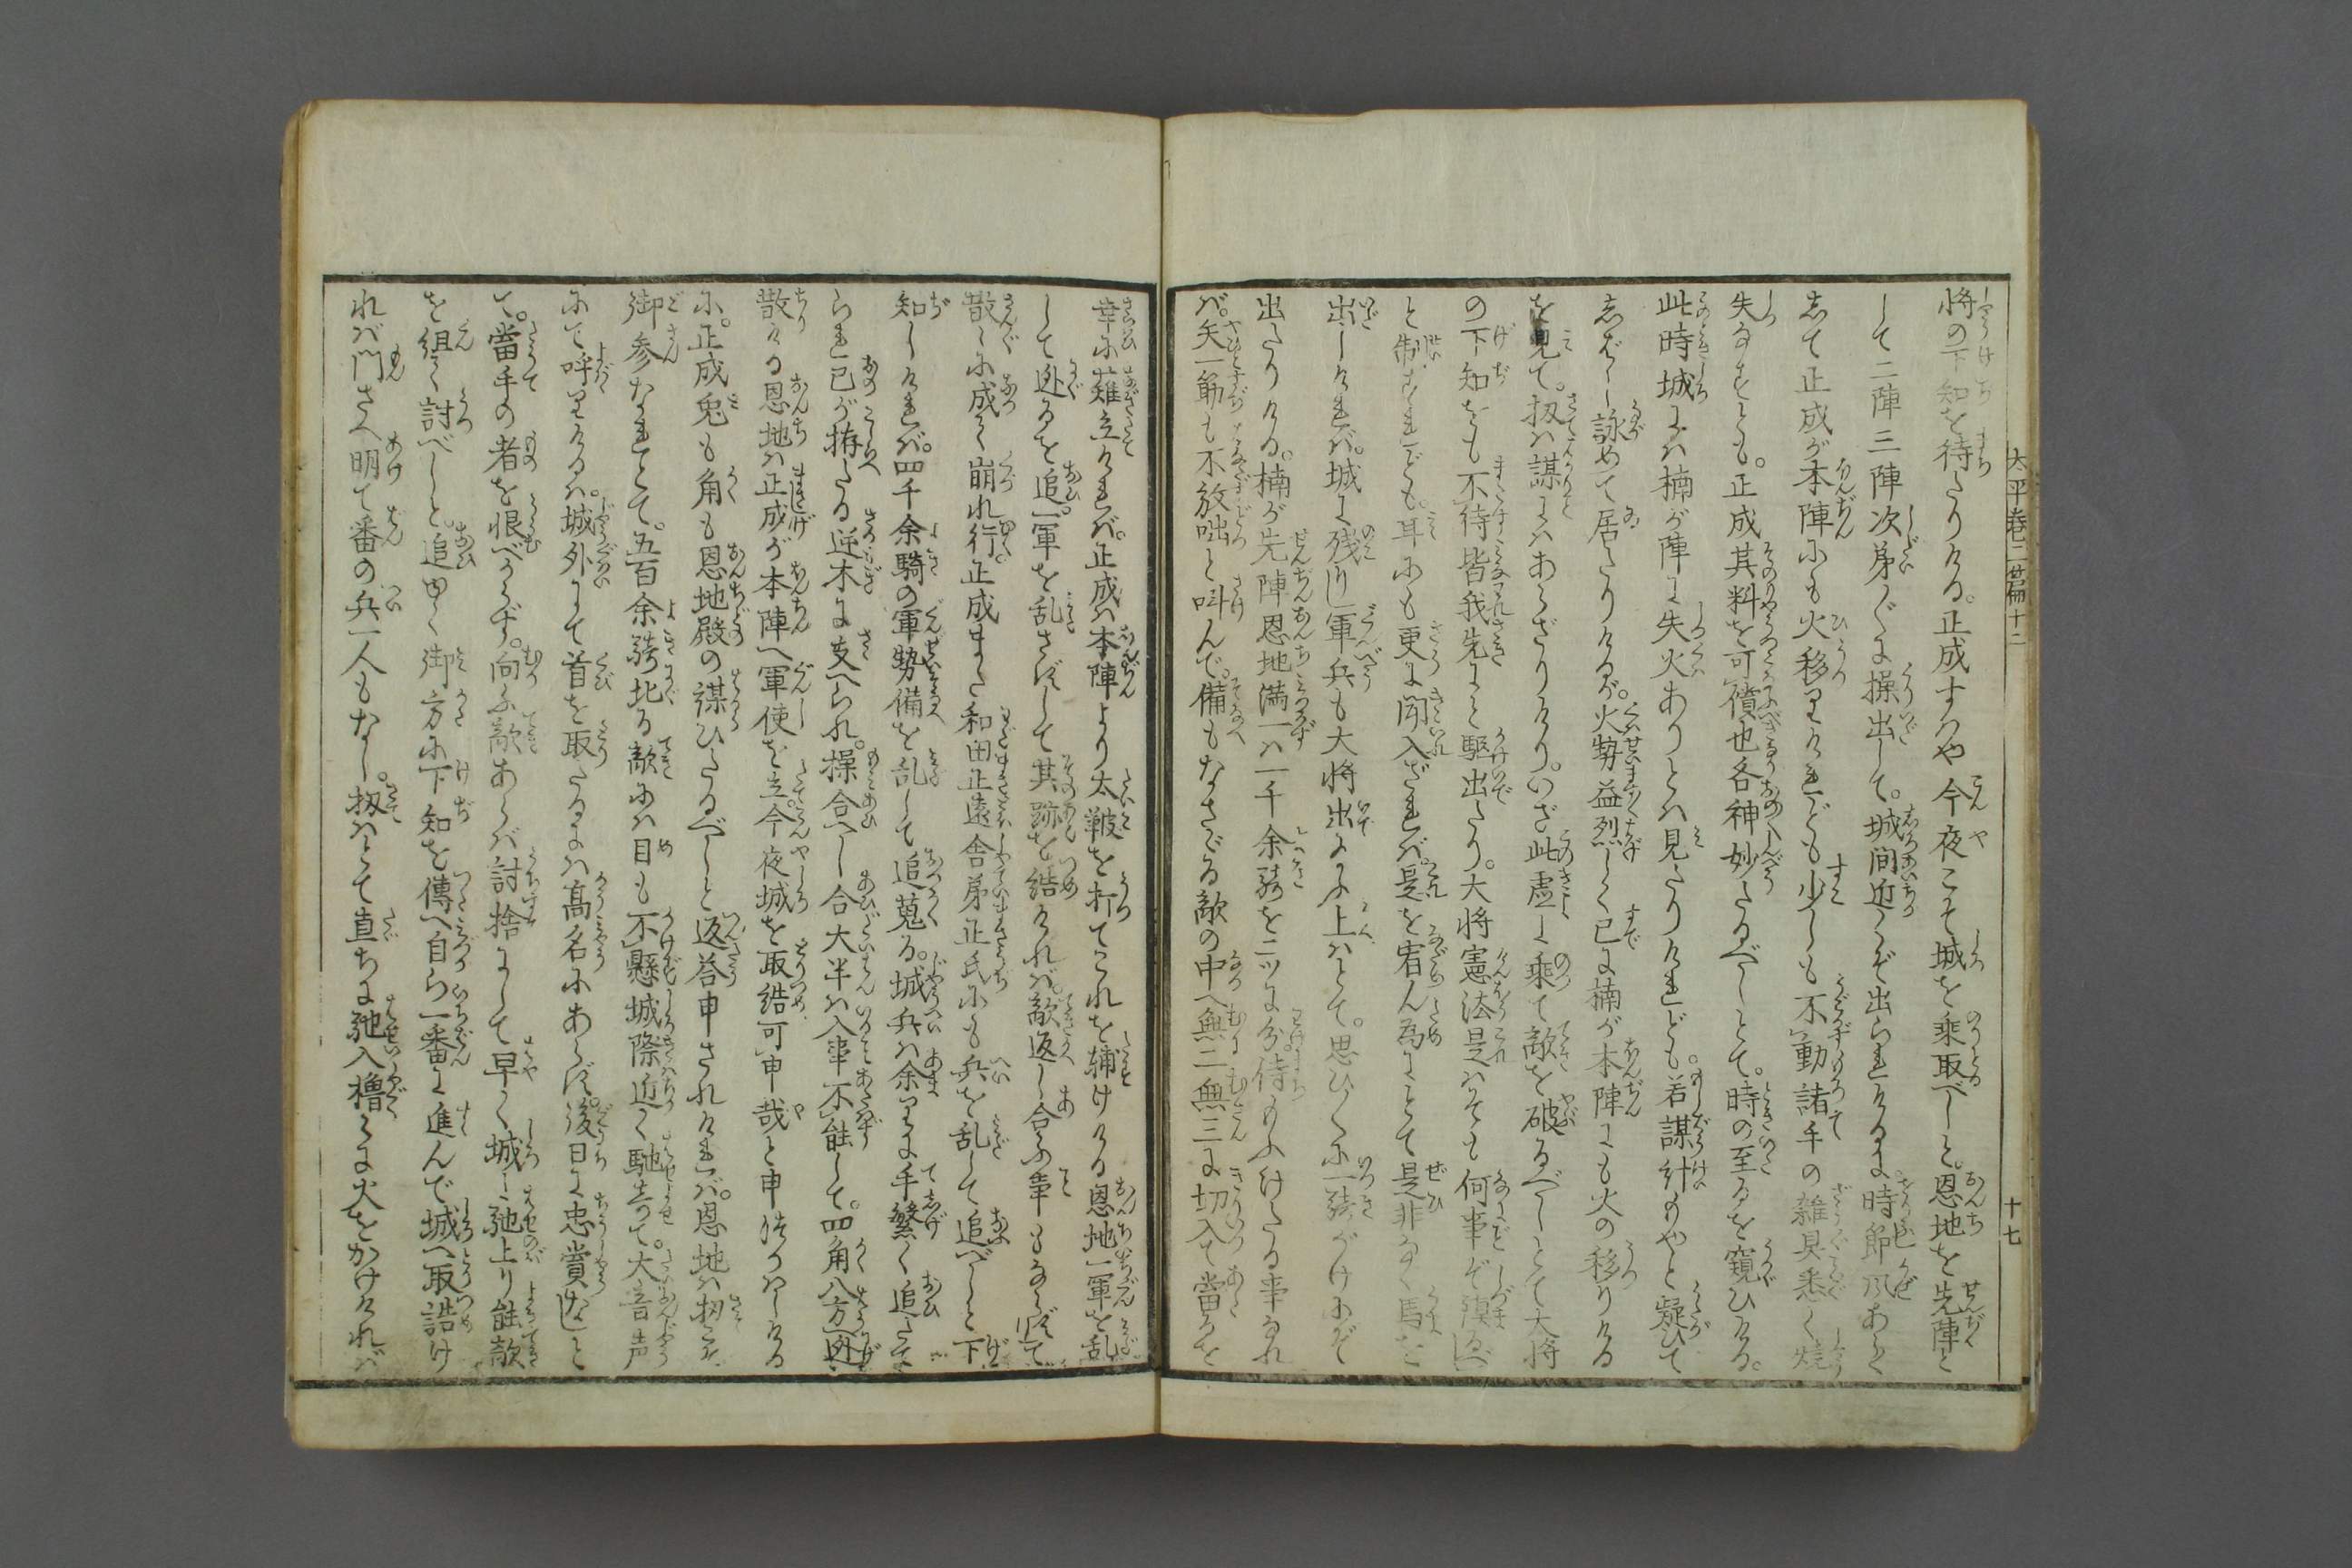 太平卷二篇十二
十七
将の下知を待たりける。正成すハや今夜こそ城を乗取べしと。恩地を先陣と
して二陣三陣次㐧〳〵に操出して。城间近くぞ出られける。時節風あらく
して正成が本陣にも火移りけれども少しも不動諸手の雑具悉く焼
失なすとも。正成其料を可償也各神妙たるべしとて。時の至るを窺ひける。
此時城にハ楠が陣に失火ありとハ見たりけれども。若謀計もやと疑ひて
志ばし詠めて居たりけるが。火勢益烈しく已に楠が本陣にも火の移りける
を見て。扨ハ謀にハあらざりけり。いざ此虚に乗て敵を破るべしとて大将
の下知をも不待皆我先にと駆出たり。大将憲法是ハそも何事ぞ
と制すれども。耳にも更に聞入ざれバ。是を宥ん為にとて是非なく馬を
出しけれバ。城に残りし軍兵も大将出る上ハとて。思ひ〳〵に一騎がけにぞ
出たりける。楠が先陣恩地満一ハ一千余騎を二ツに分。待もふけたる事なれ
バ。矢一筋も不放咄と叫んで。備もなさゞる敵の中へ無二無三に切入て當るを
幸に薙立けれバ。正成ハ本陣より太皷を打てこれを補ける恩地一軍を乱
して迯るを追。一軍を乱さずして其跡を結けれバ。敵返し合ふ事もならずして
散〻に成て崩れ行。正成また和田正遠舎弟正氏にも兵を乱して追べしと下
知しけれバ。四千余騎の軍勢備を乱して追蒐る。城兵ハ余りに手繁く追たて
られ已が拵たる逆木に支へられ。操合へし合大半ハ入事不能して。四角八方迯
散ける恩地ハ正成が本陣へ軍使を立。今夜城を取結可申哉と申
に。正成兎も角も恩地殿の謀ひたるべしと返荅申されけれバ。恩地ハ扨こそ
御参なれとて。五百余騎北る敵にハ目も不懸城際近く馳寄て。大音声
にて呼りけるハ。城外にて首を取たるにハ髙名にあらず。後日に忠賞なしと
て。當手の者を恨べからず。向ふ敵あらバ討捨にして早く城に馳上り能敵
を組て討べしと。追〻御方に下知を傳へ自ら一番に進んで城へ取詰け
れバ門さへ明て番の兵一人もなし。扨ハとて直ちに馳入櫓〻に火をかけけれバ